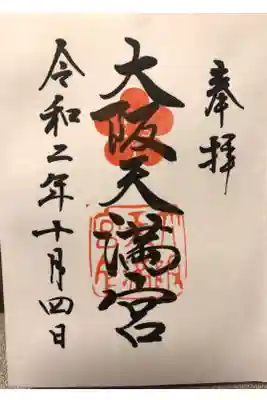 奉拝
大阪天満宮
令和二年十月四日